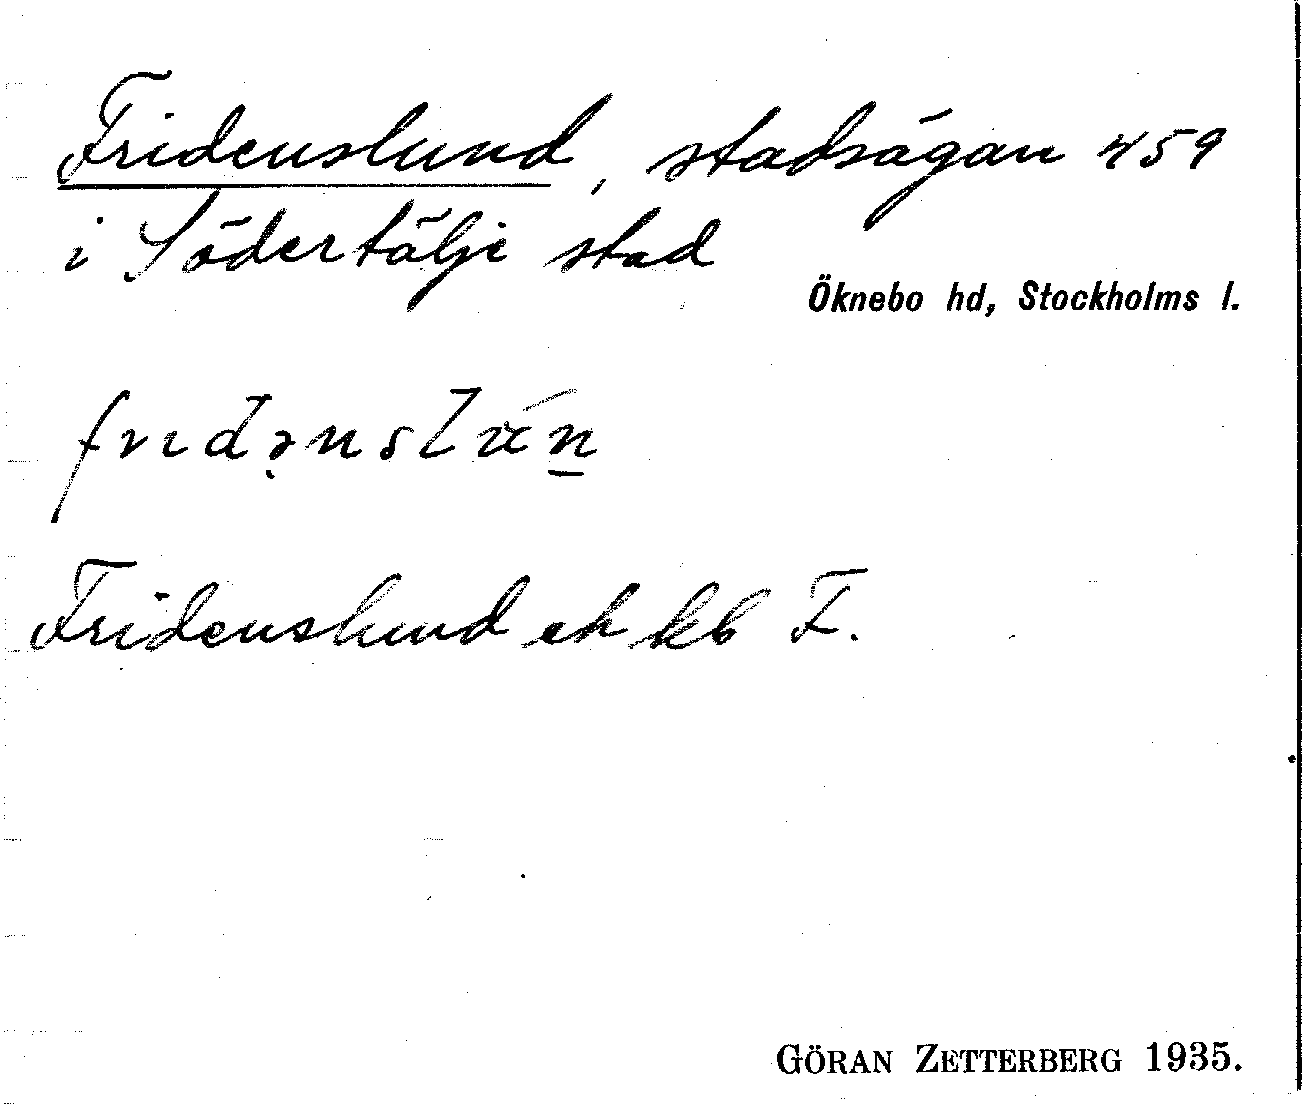 Fridenslund, stadsägan 459
i Södertälje stad
Öknebo hd, Stockholms l.
Fridenslund ek kb F.
GÖRAN ZETTERBERG 1935.